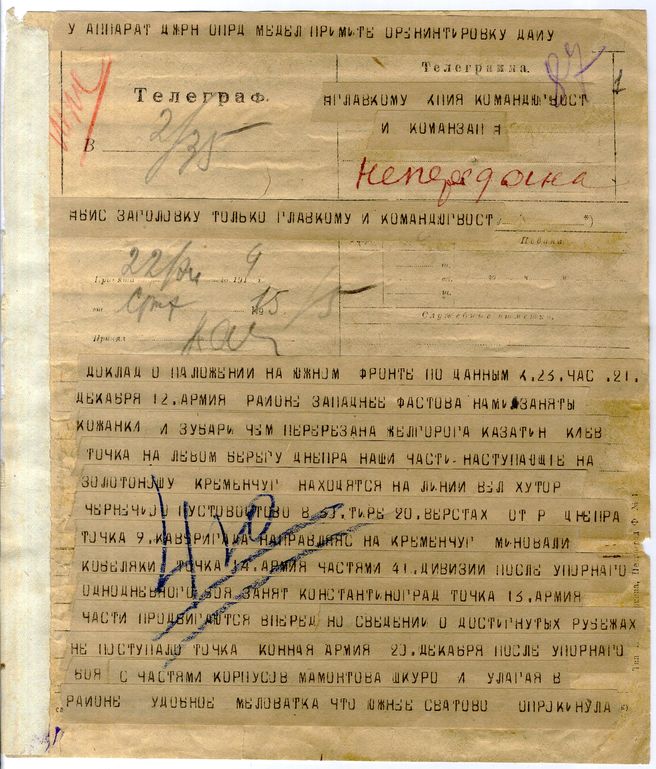 У АППАРАТ ДЖРН ОПРД МЕДЕЛ ПРИМИТЕ ОРЕНИНТИРОВКУ ДАЙУ
Телеграмма.
87
1
Телеграф.
ГЛАВКОМУ КПИЯ КОМАНДЮГВОСТ
И КОМАНЗАП
В 2/35
Непередана
НБИС ЗАГОЛОВКУ ТОЛЬКО ГЛАВКОМУ И КОМАНДЮГВОСТ *)
Подана.
22/XII 9
Принята 191
ч. м.
№ 15
Служебныя отметки.
Принял
ДОКЛАД О ПАЛОЖЕНИИ НА ЮЖНОМ ФРОНТЕ ПО ДАННЫМ К.23.ЧАС .21.
ДЕКАБРЯ 12.АРМИЯ РАЙОНЕ ЗАПАДНЕЕ ФАСТОВА НАМИ ЗАНЯТЫ
КОЖАНКИ И ЗУБАРИ ЧЕМ ПЕРЕРЕЗАНА ЖЕЛГОРОГА КАЗАТИН КИЕВ
ТОЧКА НА ЛЕВОМ БЕРЕГУ ДНЕПРА НАШИ ЧАСТИ НАСТУПАЮЩИЕ НА
ЗОЛОТОНОШУ КРЕМЕНЧУГ НАХОДЯТСЯ НА ЛИНИИ ВЕЛ ХУТОР
ПУСТОВОЙТОВО В ТИРЕ 20.ВЕРСТАХ ОТ Р ДНЕПРА
ТОЧКА 9.КАВБРИГАДА НАПРАВЛЯЯС НА КРЕМЕНЧУГ МИНОВАЛИ
КОБЕЛЯКИ ТОЧКА 14.АРМИЯ ЧАСТЯМИ 41.ДИВИЗИИ ПОСЛЕ УПОРНАГО
ОДНОДНЕВНОГО БОЯ ЗАНЯТ КОНСТАНТИНОГРАД ТОЧКА 13.АРМИЯ
ЧАСТИ ПРОДВИГАЮТСЯ ВПЕРЕД НО СВЕДЕНИИ О ДОСТИГНУТЫХ РУБЕЖАХ
НЕ ПОСТУПАЛО ТОЧКА КОННАЯ АРМИЯ 20.ДЕКАБРЯ ПОСЛЕ УПОРНАГО
БОЯ С ЧАСТЯМИ КОРПУСОВ МАМОНТОВА ШКУРО И УЛАГАЯ В
РАЙОНЕ УДОБНОЕ МЕЛОВАТКА ЧТО ЮЖНЕЕ СВАТОВО ОПРОКИНУЛА